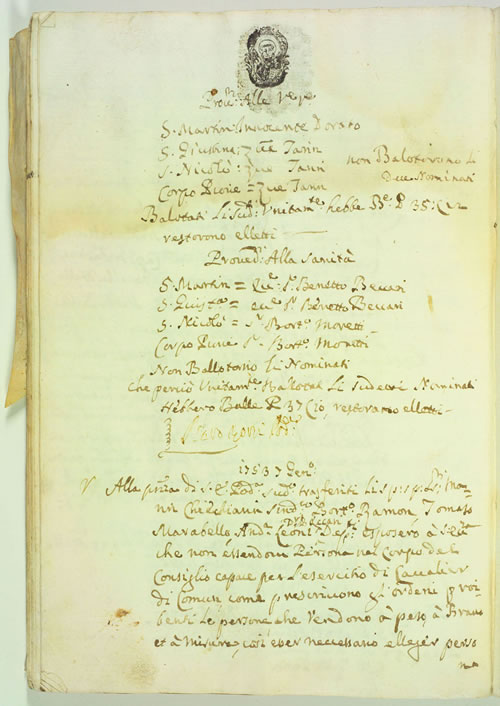 Prov:ri Alle Vepe
S. Martin: Innocente Dorato
S. Giustina: Zue Tarin
S. Nicolò: Zue Tarin
Corpo Pione = Zue Tarin
non Balotorono Li
Due Nominati
Balotati Li Sud:ti Unitam:te hebbe B:e P 35: C
restorono elletti
Proved:ri Alla Sanità
S. Martin = Benetto Beccari
S. Giusta = Benetto Beccari
S. Nicolò = Bort:o Moretti
Corpo Pione Bort:o Moretti
Non Ballotorno Li Nominati
Che perciò Unitam:te Ballotati Li Sudetti Nominati
Hebbero Balle P 37 C 10, restorano elletti
1753 7 Gen:o
Alla di S. E. Pod:a Sud:o trasferiti Li
Bort:o Ramon Tomaso
Marabello And:a Leoni Esposero à S. E.
che non essendovi Persona nel Corpo del
Consiglio capace per L'esercitio di Cavalier
di Comun come prescrivono gl'ordeni proi
benti Le persone che Vendono à peso, à Brazzo
et à misure, così esser necessario elleger perso
na